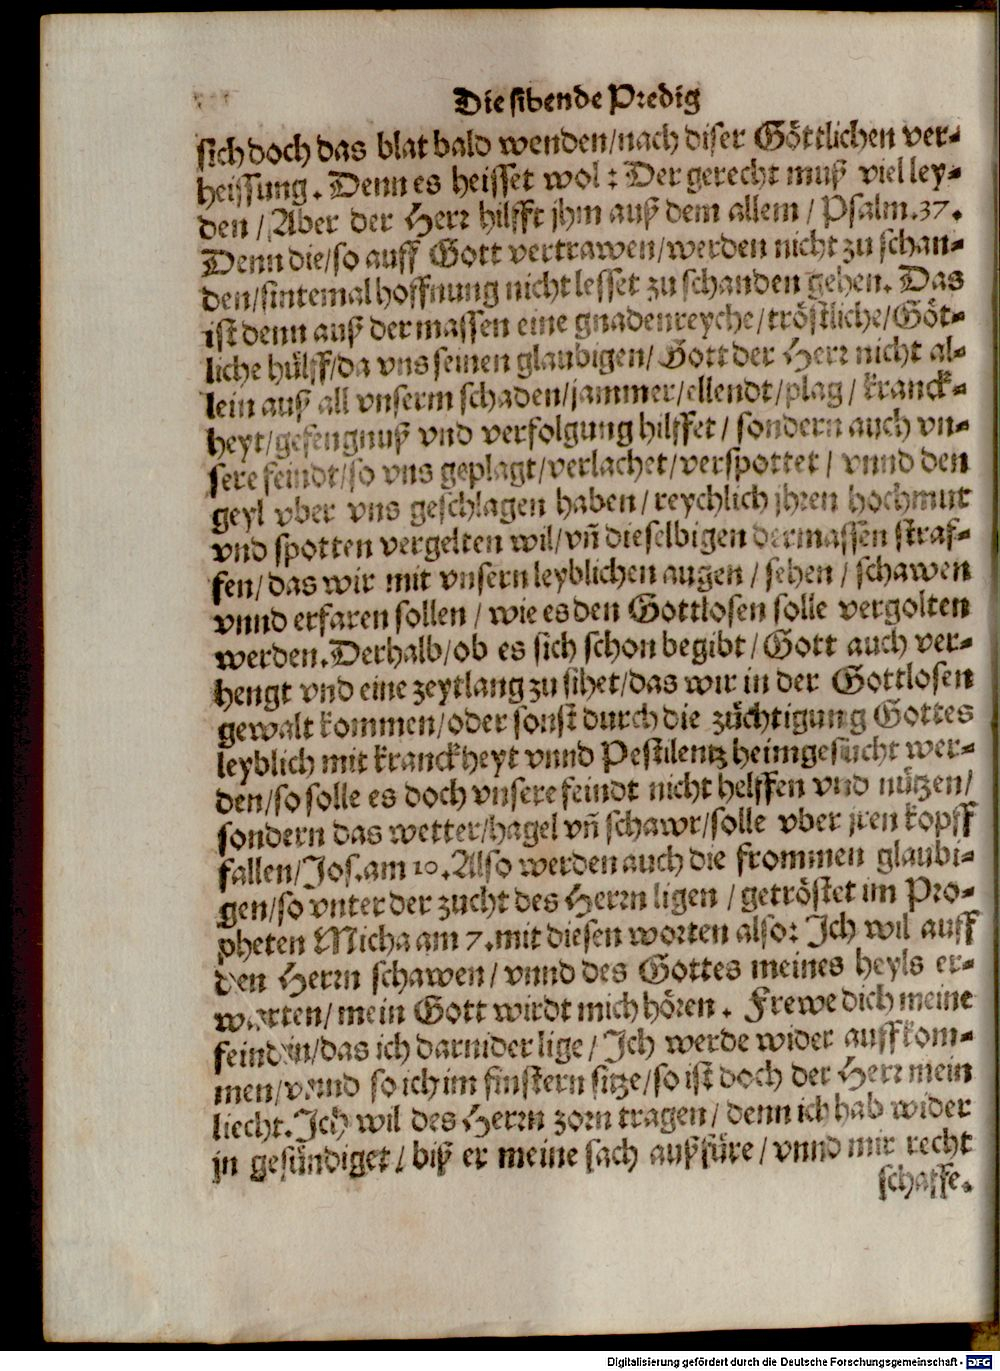 Die sibende Predig
sich doch das blat bald wenden/nach diser Göttlichen ver-
heissung. Denn es heisset wol: Der gerecht muß viel ley-
den / Aber der Herr hilfft jhm auß dem allem / Psalm.37.
Denn die/so auff Gott vertrawen/werden nicht zu schan-
den/sintemal hoffnung nicht lesset zu schanden gehen. Das
ist denn auß der massen eine gnadenreyche/tröstliche/Göt-
liche hülff/da vns seinen glaubigen/ Gott der Herr nicht al-
lein auß all vnserm schaden/jammer/ellendt/plag / kranck-
heyt/gefengnuß vnd verfolgung hilffet / sondern auch vn-
sere feindt/so vns geplagt/verlachet/verspottet / vnnd den
geyl vber vns geschlagen haben / reychlich jhren hochmut
vnd spotten vergelten wil/vñ dieselbigen dermassen straf-
fen/das wir mit vnsern leyblichen augen / sehen / schawen
vnnd erfaren sollen / wie es den Gottlosen solle vergolten
werden.Derhalb/ob es sich schon begibt / Gott auch ver-
hengt vnd eine zeytlang zu sihet/das wir in der Gottlosen
gewalt kommen/oder sonst durch die züchtigung Gottes
leyblich mit kranckheyt vnnd Pestilentz heimgesücht wer-
den/so solle es doch vnsere feindt nicht helffen vnd nützen/
sondern das wetter/hagel vñ schawr/solle vber jren kopff
fallen/Jos.am 10.Also werden auch die frommen glaubi-
gen/so vnter der zucht des Herrn ligen / getröstet im Pro-
pheten Micha am 7.mit diesen worten also: Ich wil auff
den Herrn schawen / vnnd des Gottes meines heyls er-
warten/mein Gott wirdt mich hören . Frewe dich meine
feindin/das ich darnider lige / Ich werde wider auffkom-
men/vnnd so ich im finstern sitze/so ist doch der Herr mein
liecht.Ich wil des Herrn zorn tragen / denn ich hab wider
jn gesündiget / biß er meine sach außfüre / vnnd mir recht
schaffe.
Digitalisierung gefördert durch die Deutsche Forschungsgemeinschaft - DFG